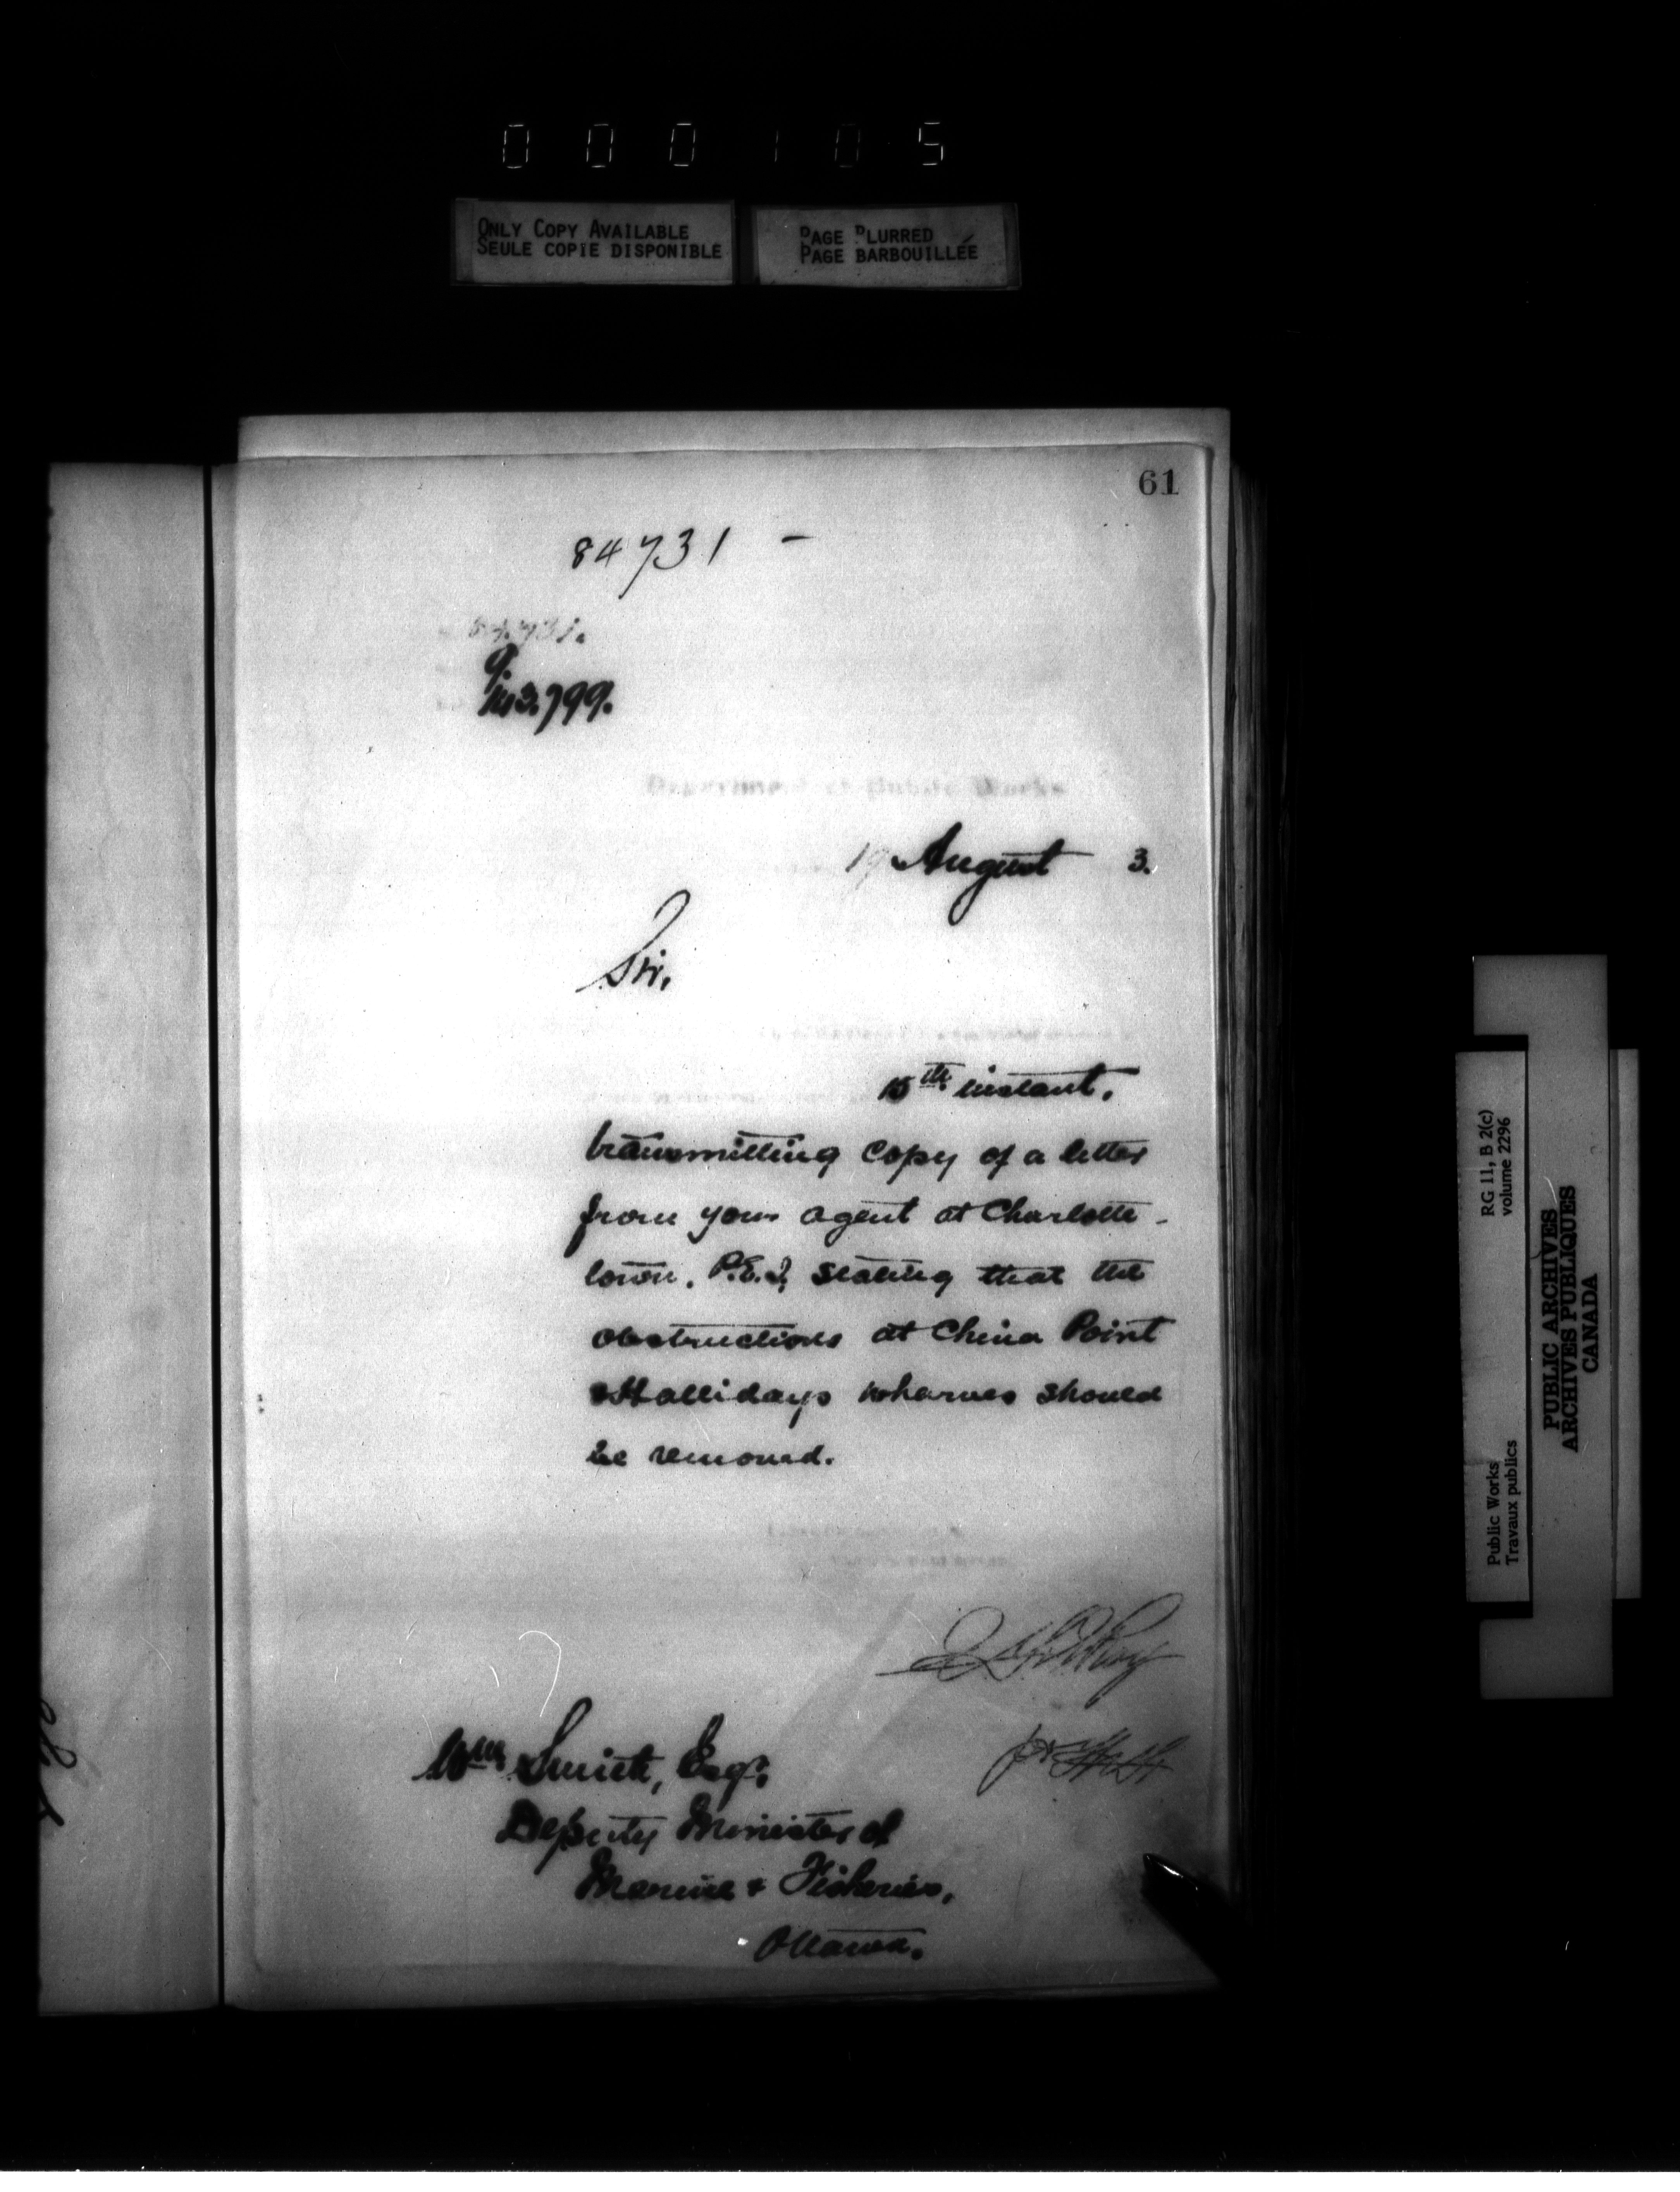 000105
ONLY COPY AVAILABLE
SEULE COPIE DISPONIBLE
PAGE BLURRED
PAGE BARBOUILLÉE
61
84731 -
84.731.
143.799.
Department of Public Works
19 August 3.
Sir,
15th instant,
transmitting copy of a letter
from your agent at Charlotte-
town, P.E.I, stating that the
obstructions at China Point
& Hallidays wharves should
be removed.
Wm Smith, Esqr.
Deputy Minister of
Marine & Fisheries,
Ottawa.
RG 11, B 2(c)
volume 2296
Public Works
Travaux publics
PUBLIC ARCHIVES
ARCHIVES PUBLIQUES
CANADA